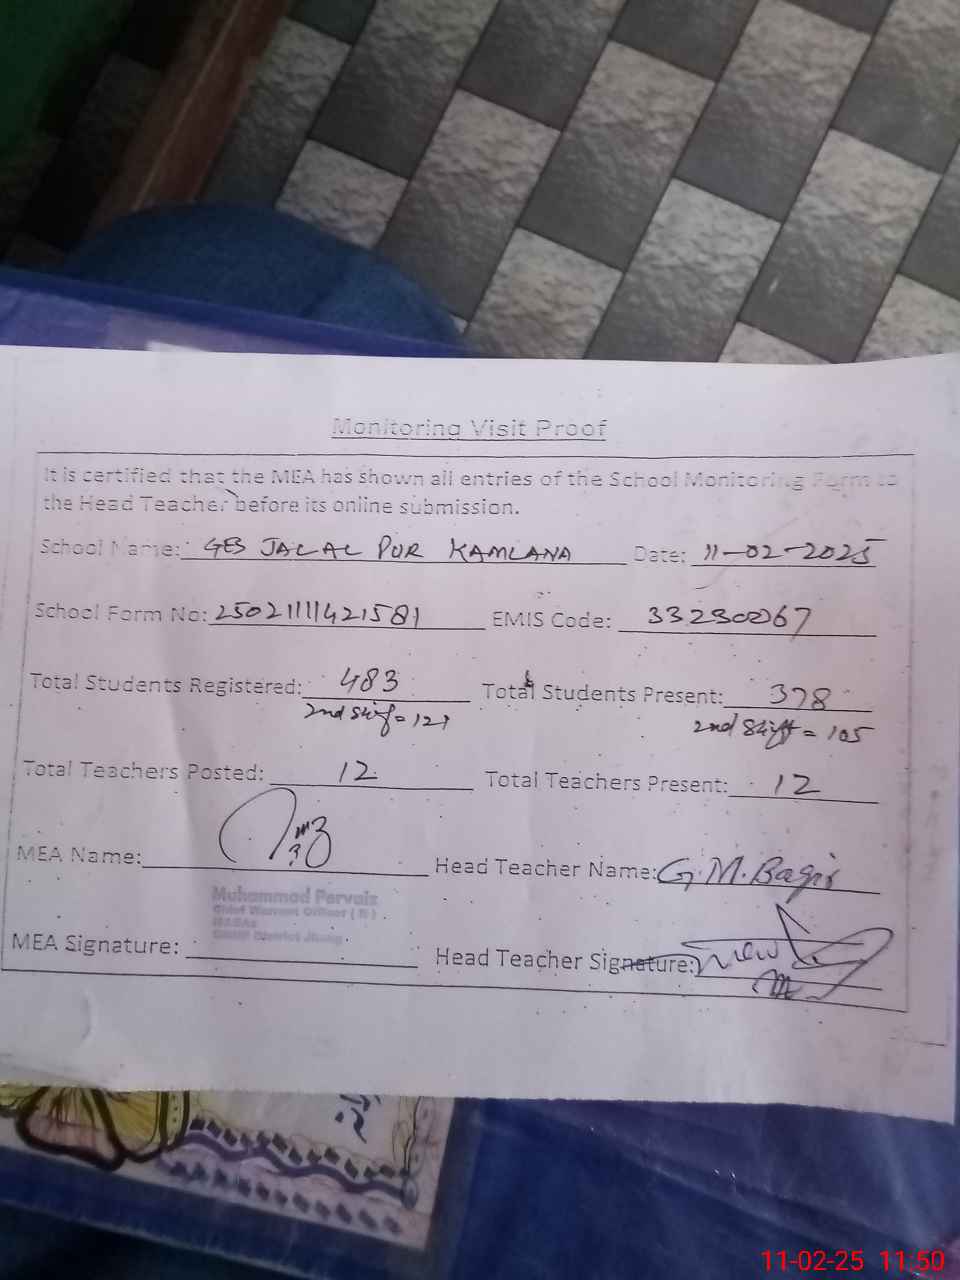 Monitoring Visit Proof
It is certified that the MEA has shown all entries of the School Monitoring Form to
the Head Teacher before its online submission.
School Name: GES JALAL PUR KAMLANA Date: 11-02-2025
School Form No: 2502111421581 EMIS Code: 33230067
Total Students Registered: 483 Total Students Present: 378
2nd Shif = 121 2nd Shift = 105
Total Teachers Posted: 12 Total Teachers Present: 12
MEA Name: Head Teacher Name: G.M.Baqir
Muhammad Pervaiz
Chief Warrant Officer ( R )
MEA Signature: Head Teacher Signature:
11-02-25 11:50